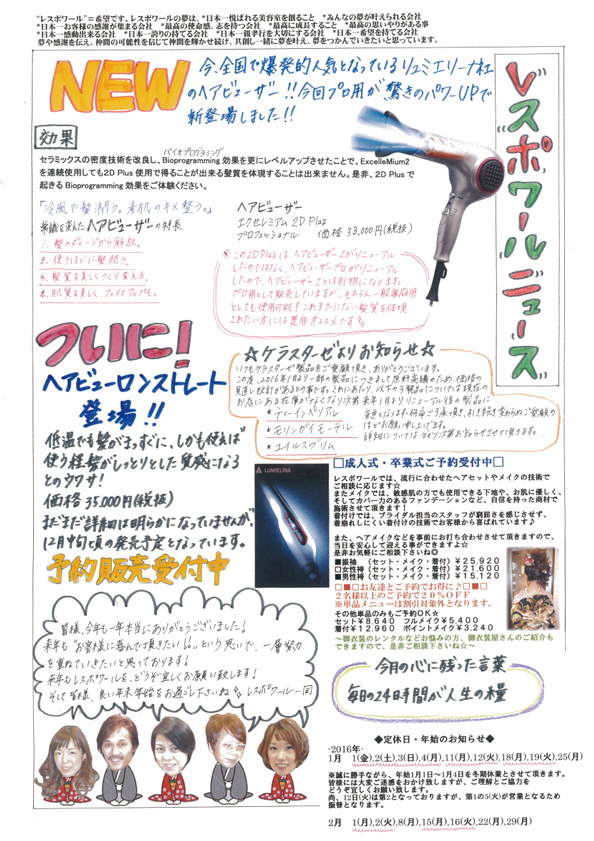 "レスポワール"=希望です。レスポワールの夢は、*日本一悦ばれる美容室を創ること *みんなの夢が叶えられる会社
*日本一お客様の感謝が集まる会社 *最高の使命感、志を持つ会社 *最高に成長すること *最高の思いやりがある事
*日本一感動出来る会社 *日本一誇りの持てる会社 *日本一親孝行を大切にする会社 *日本一希望を持てる会社
夢や感謝を伝え、仲間の可能性を信じて仲間を輝かせ続け、共創し一緒に夢を叶え、夢をつかんでいきたいと思っています。
レスポワールニュース
NEW
今、全国で爆発的人気となっているリュミエリーナ社
のヘアビューザー!!今回プロ用が驚きのパワーUPで
新登場しました!!
効果
バイオプログラミング
セラミックスの密度技術を改良し、Bioprogramming効果を更にレベルアップさせたことで、ExcelleMium2
を連続使用しても2D Plus使用で得ることが出来る髪質を体現することは出来ません。是非、2D Plusで
起きるBioprogramming効果をご体験ください。
「冷風で髪潤う。素肌のキメ整う。」
常識を変えたヘアビューザーの特長
1. 髪のダメージから解放。
2. 使うほどに髪潤う。
3. 髪質を美しくつくり変える。
4. 肌質を美しく、フェイスアップも。
ヘアビューザー
エクセレミアム 2D Plus
プロフェッショナル 価格 33,000円(税抜)
※この2D Plusは、ヘアビューザー2がリニューアル
したのではなく、ヘアビューザープロがリニューアル
したので、ヘアビューザー2とは別物になります。
プロ用として販売していますが、もちろん一般家庭用
としても使用可能!これまでにない髪質を体現
されたい方には是非オススメです。
ついに!
ヘアビューロンストレート
登場!!
低温でも髪がまっすぐに、しかも使えば
使う程髪がしっとりとした質感になる
とのウワサ!
価格 35,000円(税抜)
まだまだ詳細は明らかになっていませんが、
12月中旬頃の発売予定となっています。
予約販売受付中
☆ケラスターゼよりお知らせ☆
いつもケラスターゼ製品をご愛顧頂き、ありがとうございます。
この度、2016年1月より一部の製品につきまして原料高騰のため、価格の
見直し改訂があるとの事です。これにあたり、以下の3製品については現在の
お店にある在庫がなくなり次第来年1月よりリニューアル後の製品に
変更となります。何卒ご了承頂き、引き続き変わらぬご愛顧の
ほどお願い申し上げます。
詳細については分かり次第お知らせさせて頂きます。
*ティーインペリアル
*モリンガイモーテル
*ユイルスブリム
LUMIELINA
□成人式・卒業式ご予約受付中□
レスポワールでは、流行に合わせたヘアセットやメイクの技術で
ご相談に応じます☆
またメイクでは、敏感肌の方でも使用できる下地や、お肌に優しく、
そしてカバー力のあるファンデーションなど、自信を持った商材で
施術させて頂きます!
着付けでは、ブライダル担当のスタッフが窮屈さを感じさせず、
着崩れしにくい着付けの技術でお客様から喜ばれています♪
また、ヘアメイクなどを事前にお打ち合わせさせて頂きますので、
当日を安心して迎える事ができますよ☆
是非お気軽にご相談下さいね◎
■振袖 (セット・メイク・着付)¥25,920
□女性袴(セット・メイク・着付)¥21,600
■男性袴(セット・メイク・着付)¥15,120
□■□お友達とご予約でお得に♪□■□
2名様以上のご予約で20%OFF
※単品メニューは割引対象外となります。
その他単品のみもご予約OK☆
セット¥8,640 フルメイク¥5,400
着付¥12,960 ポイントメイク¥3,240
~御衣装のレンタルなどお悩みの方、御衣装屋さんのご紹介も
できますので、是非ご相談下さい☆~
皆様、今年も一年本当にありがとうございました!
来年も"お客様に喜んで頂きたい!"という思いで、一層努力
を重ねていきたいと思っております!
来年もレスポワールを、どうぞ宜しくお願い致します!
そして皆様、良い年末年始をお過ごしくださいね♪ レスポワール一同
今月の心に残った言葉
毎日の24時間が人生の糧
◆定休日・年始のお知らせ◆
・2016年・
1月 1(金),2(土),3(日),4(月),11(月),12(火),18(月),19(火),25(月)
※誠に勝手ながら、年始1月1日~1月4日を冬期休業とさせて頂きます。
皆様には大変ご迷惑をおかけ致しますが、ご理解とご協力を
どうぞ宜しくお願い致します。
尚、12日(火)は第2となっておりますが、第1の5(火)が営業となるため
振替となります。
2月 1(月),2(火),8(月),15(月),16(火),22(月),29(月)